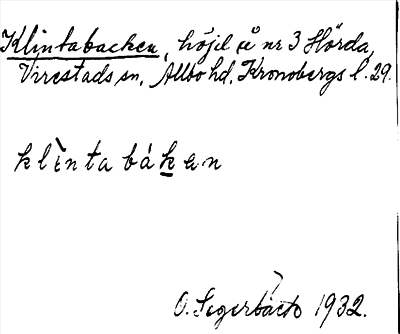 Klintabacken, höjd å nr 3 Hörda,
Virestads sn, Allbo hd. Kronobergs l. 29.
klìntabákan
O. Segerbäck 1932.